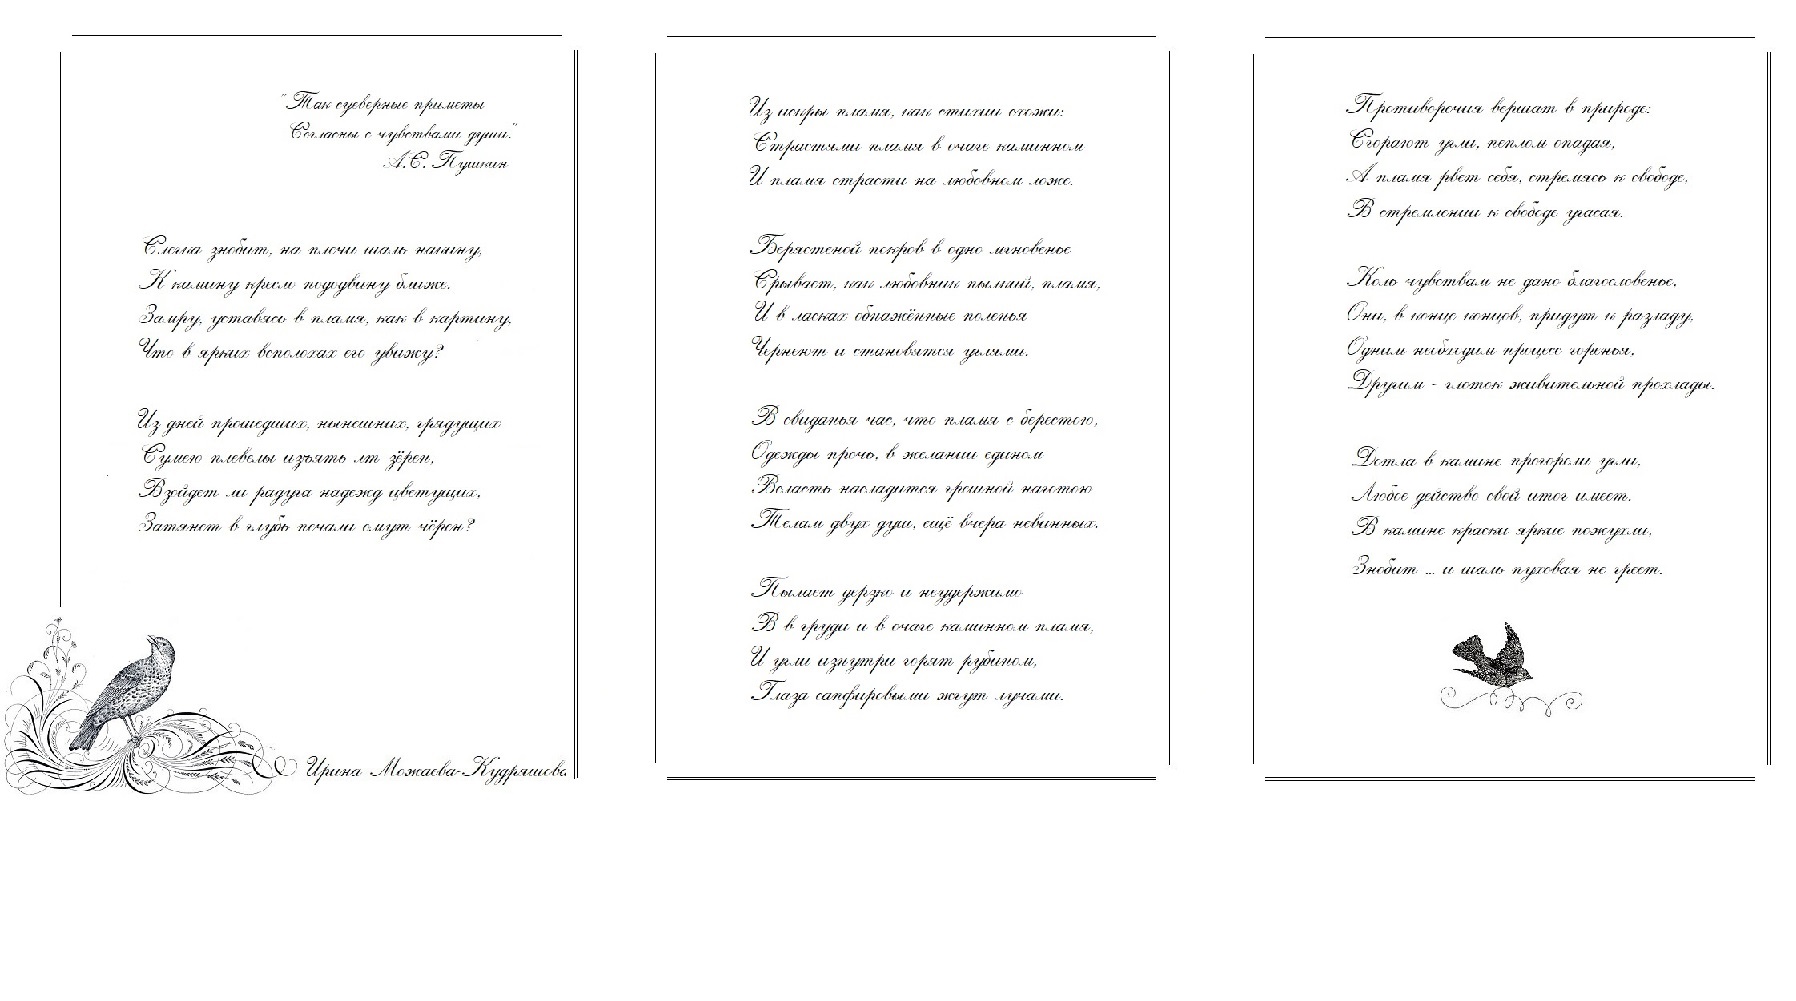 "Так суеверные приметы
Согласны с чувствами души."
А.С. Пушкин
Слегка знобит, на плечи шаль накину,
К камину кресло пододвину ближе.
Замру, уставясь в пламя, как в картину,
Что в ярких всполохах его увижу?
Из дней прошедших, нынешних, грядущих
Сумею плевелы изъять от зёрен,
Взойдет ли радуга надежд цветущих,
Затянет в глубь печали омут чёрен?
Ирина Можаева-Кудряшова
Из искры пламя, как стихии схожи:
Страстями пламя в очаге каминном
И пламя страсти на любовном ложе.
Берестеной покров в одно мгновенье
Срывает, как любовник пылкий, пламя,
И в ласках обнажённые поленья
Чернеют и становятся углями.
В свиданья час, что пламя с берестою,
Одежды прочь, в желании едином
Всласть насладится грешной наготою
Телам двух душ, ещё вчера невинных.
Пылает дерзко и неудержимо
В в груди и в очаге каминном пламя,
И угли изнутри горят рубином,
Глаза сапфировыми жгут лучами.
Противоречия вершат в природе:
Сгорают угли, пеплом опадая,
А пламя рвет себя, стремясь к свободе,
В стремлении к свободе угасая.
Коль чувствам не дано благословенье,
Они, в конце концов, придут к разладу,
Одним необходим процесс горенья,
Другим - глоток живительной прохлады.
Дотла в камине прогорели угли,
Любое действо свой итог имеет.
В камине краски яркие пожухли,
Знобит ... и шаль пуховая не греет.